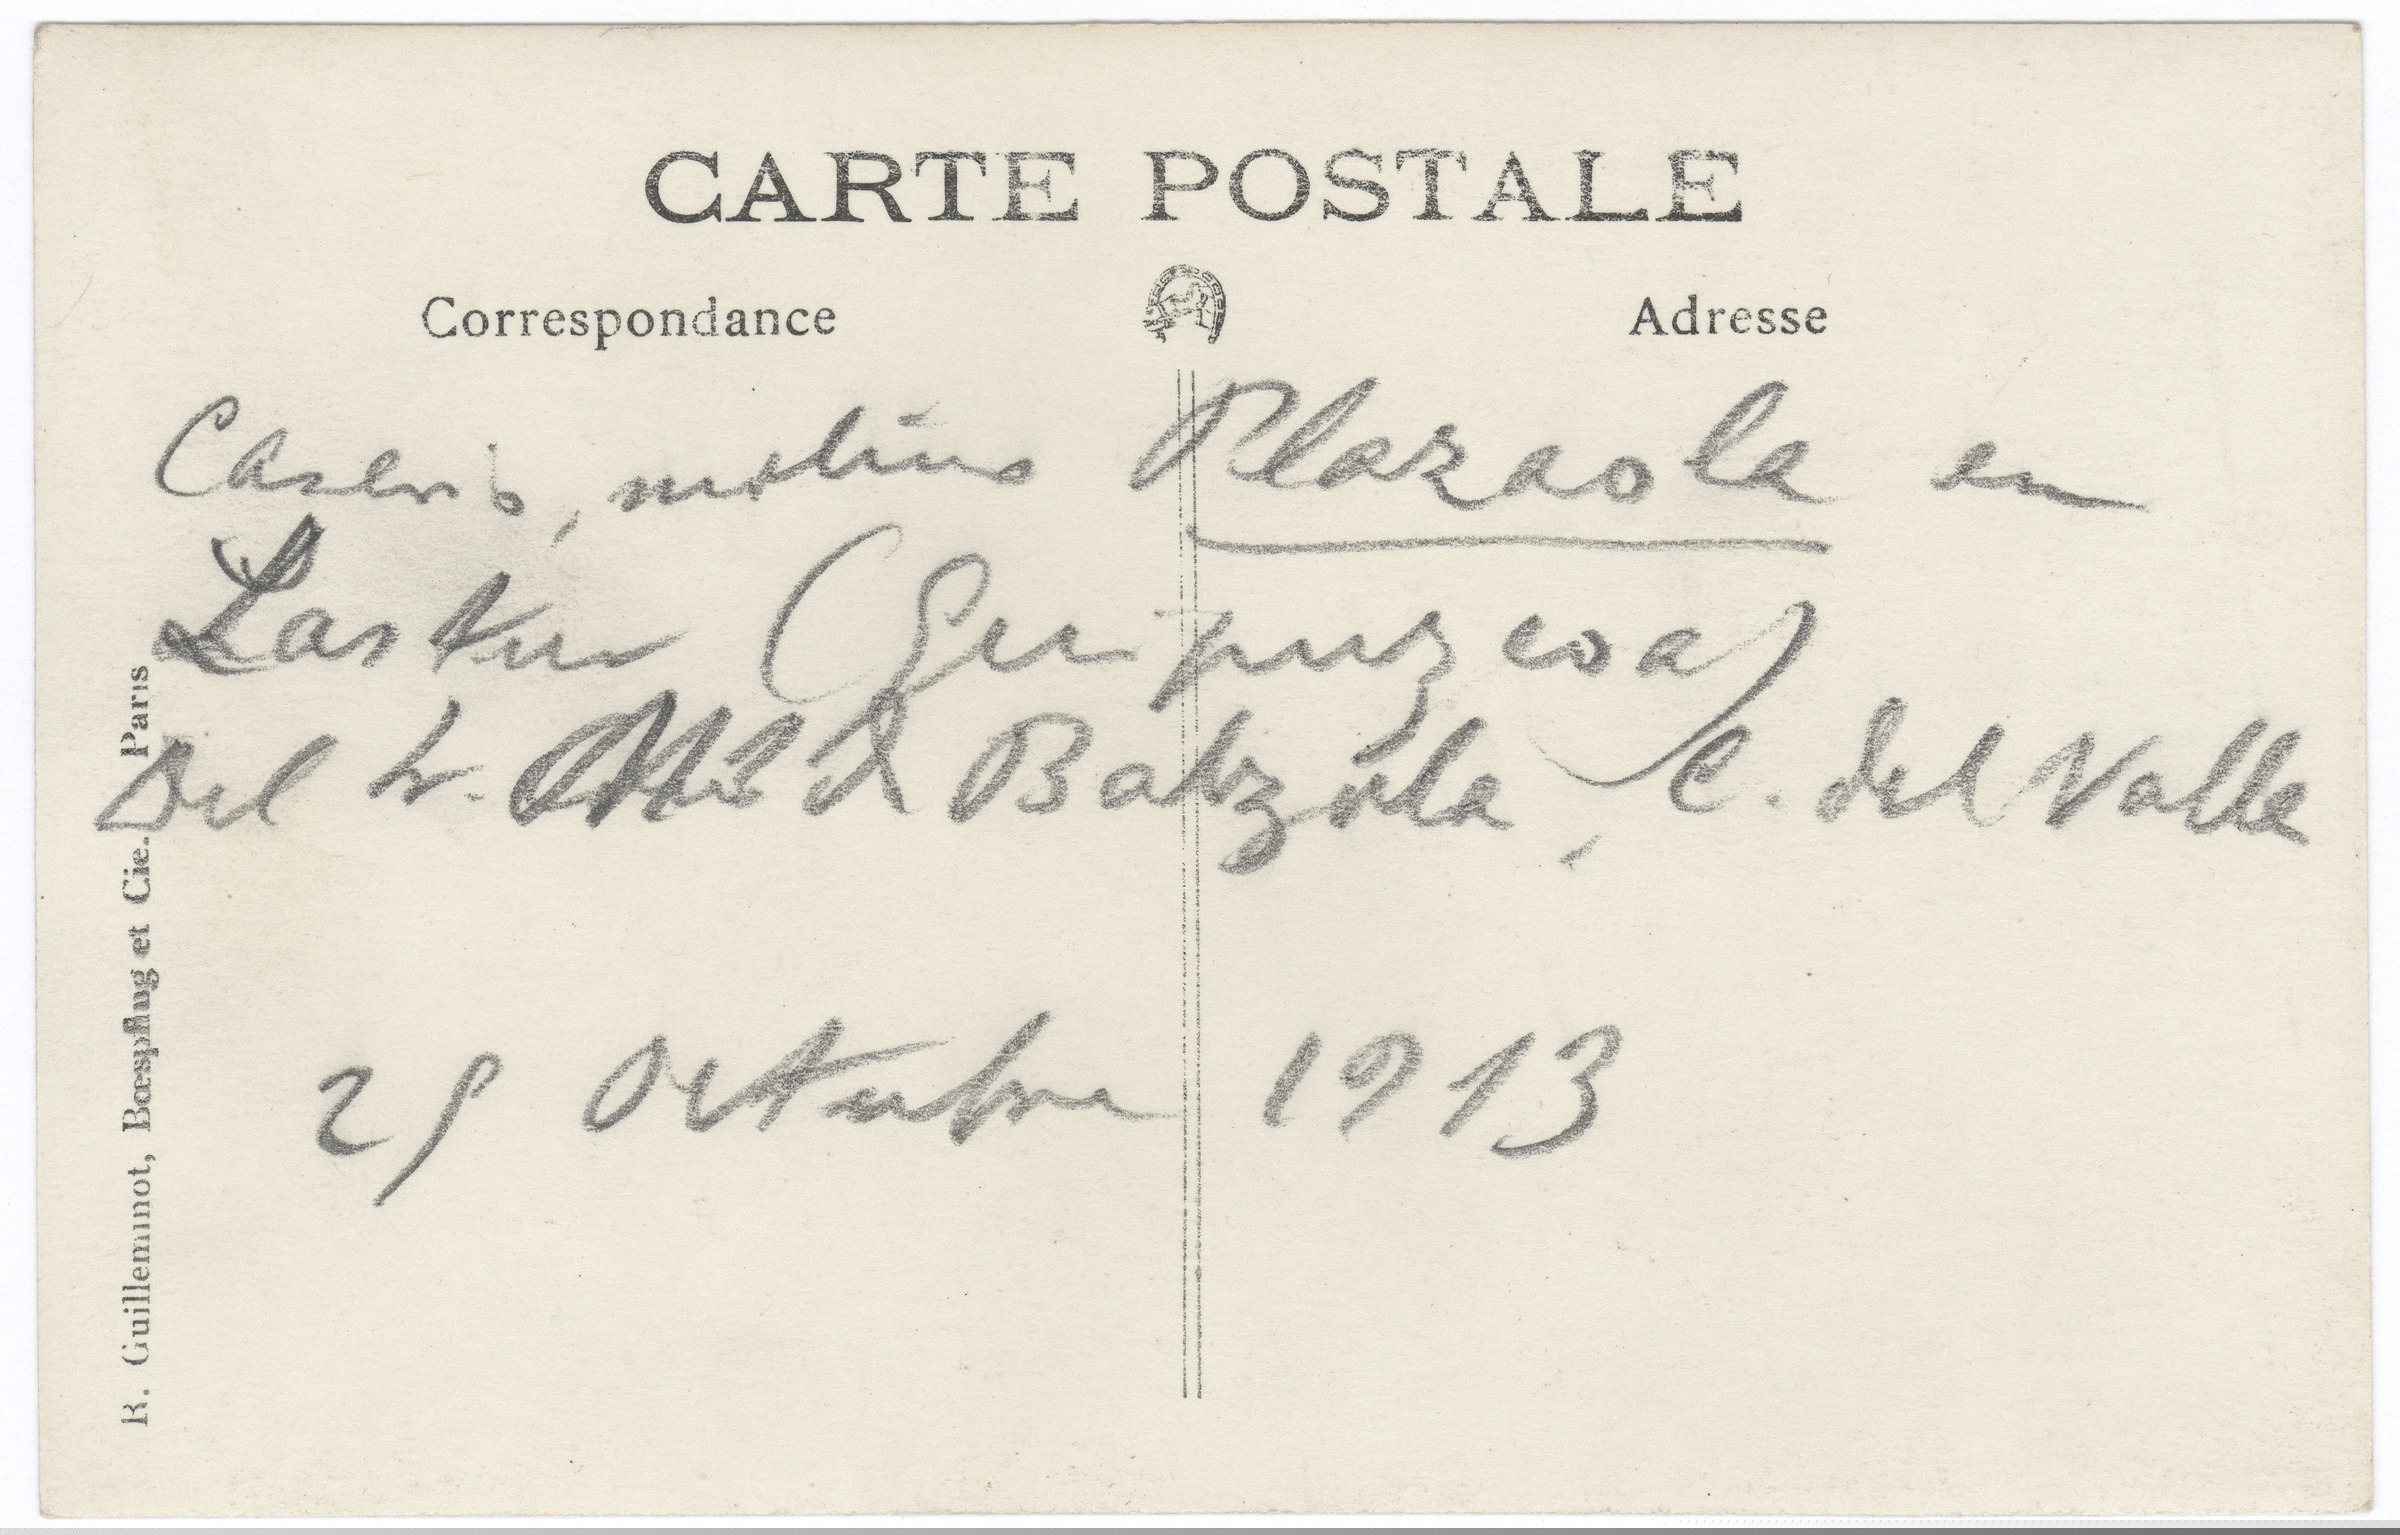 CARTE POSTALE
Correspondance
Adresse
Caserio, molino Plazaola en
Lastur (Guipuzcoa)
Del Sr. de Balzola, C. del Valle
29 Octubre 1913
R. Guillemnot, Bœspflug et Cie. Paris